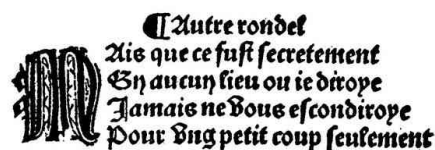 ¶ Autre rondel
MAis que ce fust secretement
En aucun lieu ou ie diroye
Jamais ne vous escondiroye
Pour vng petit coup seulement